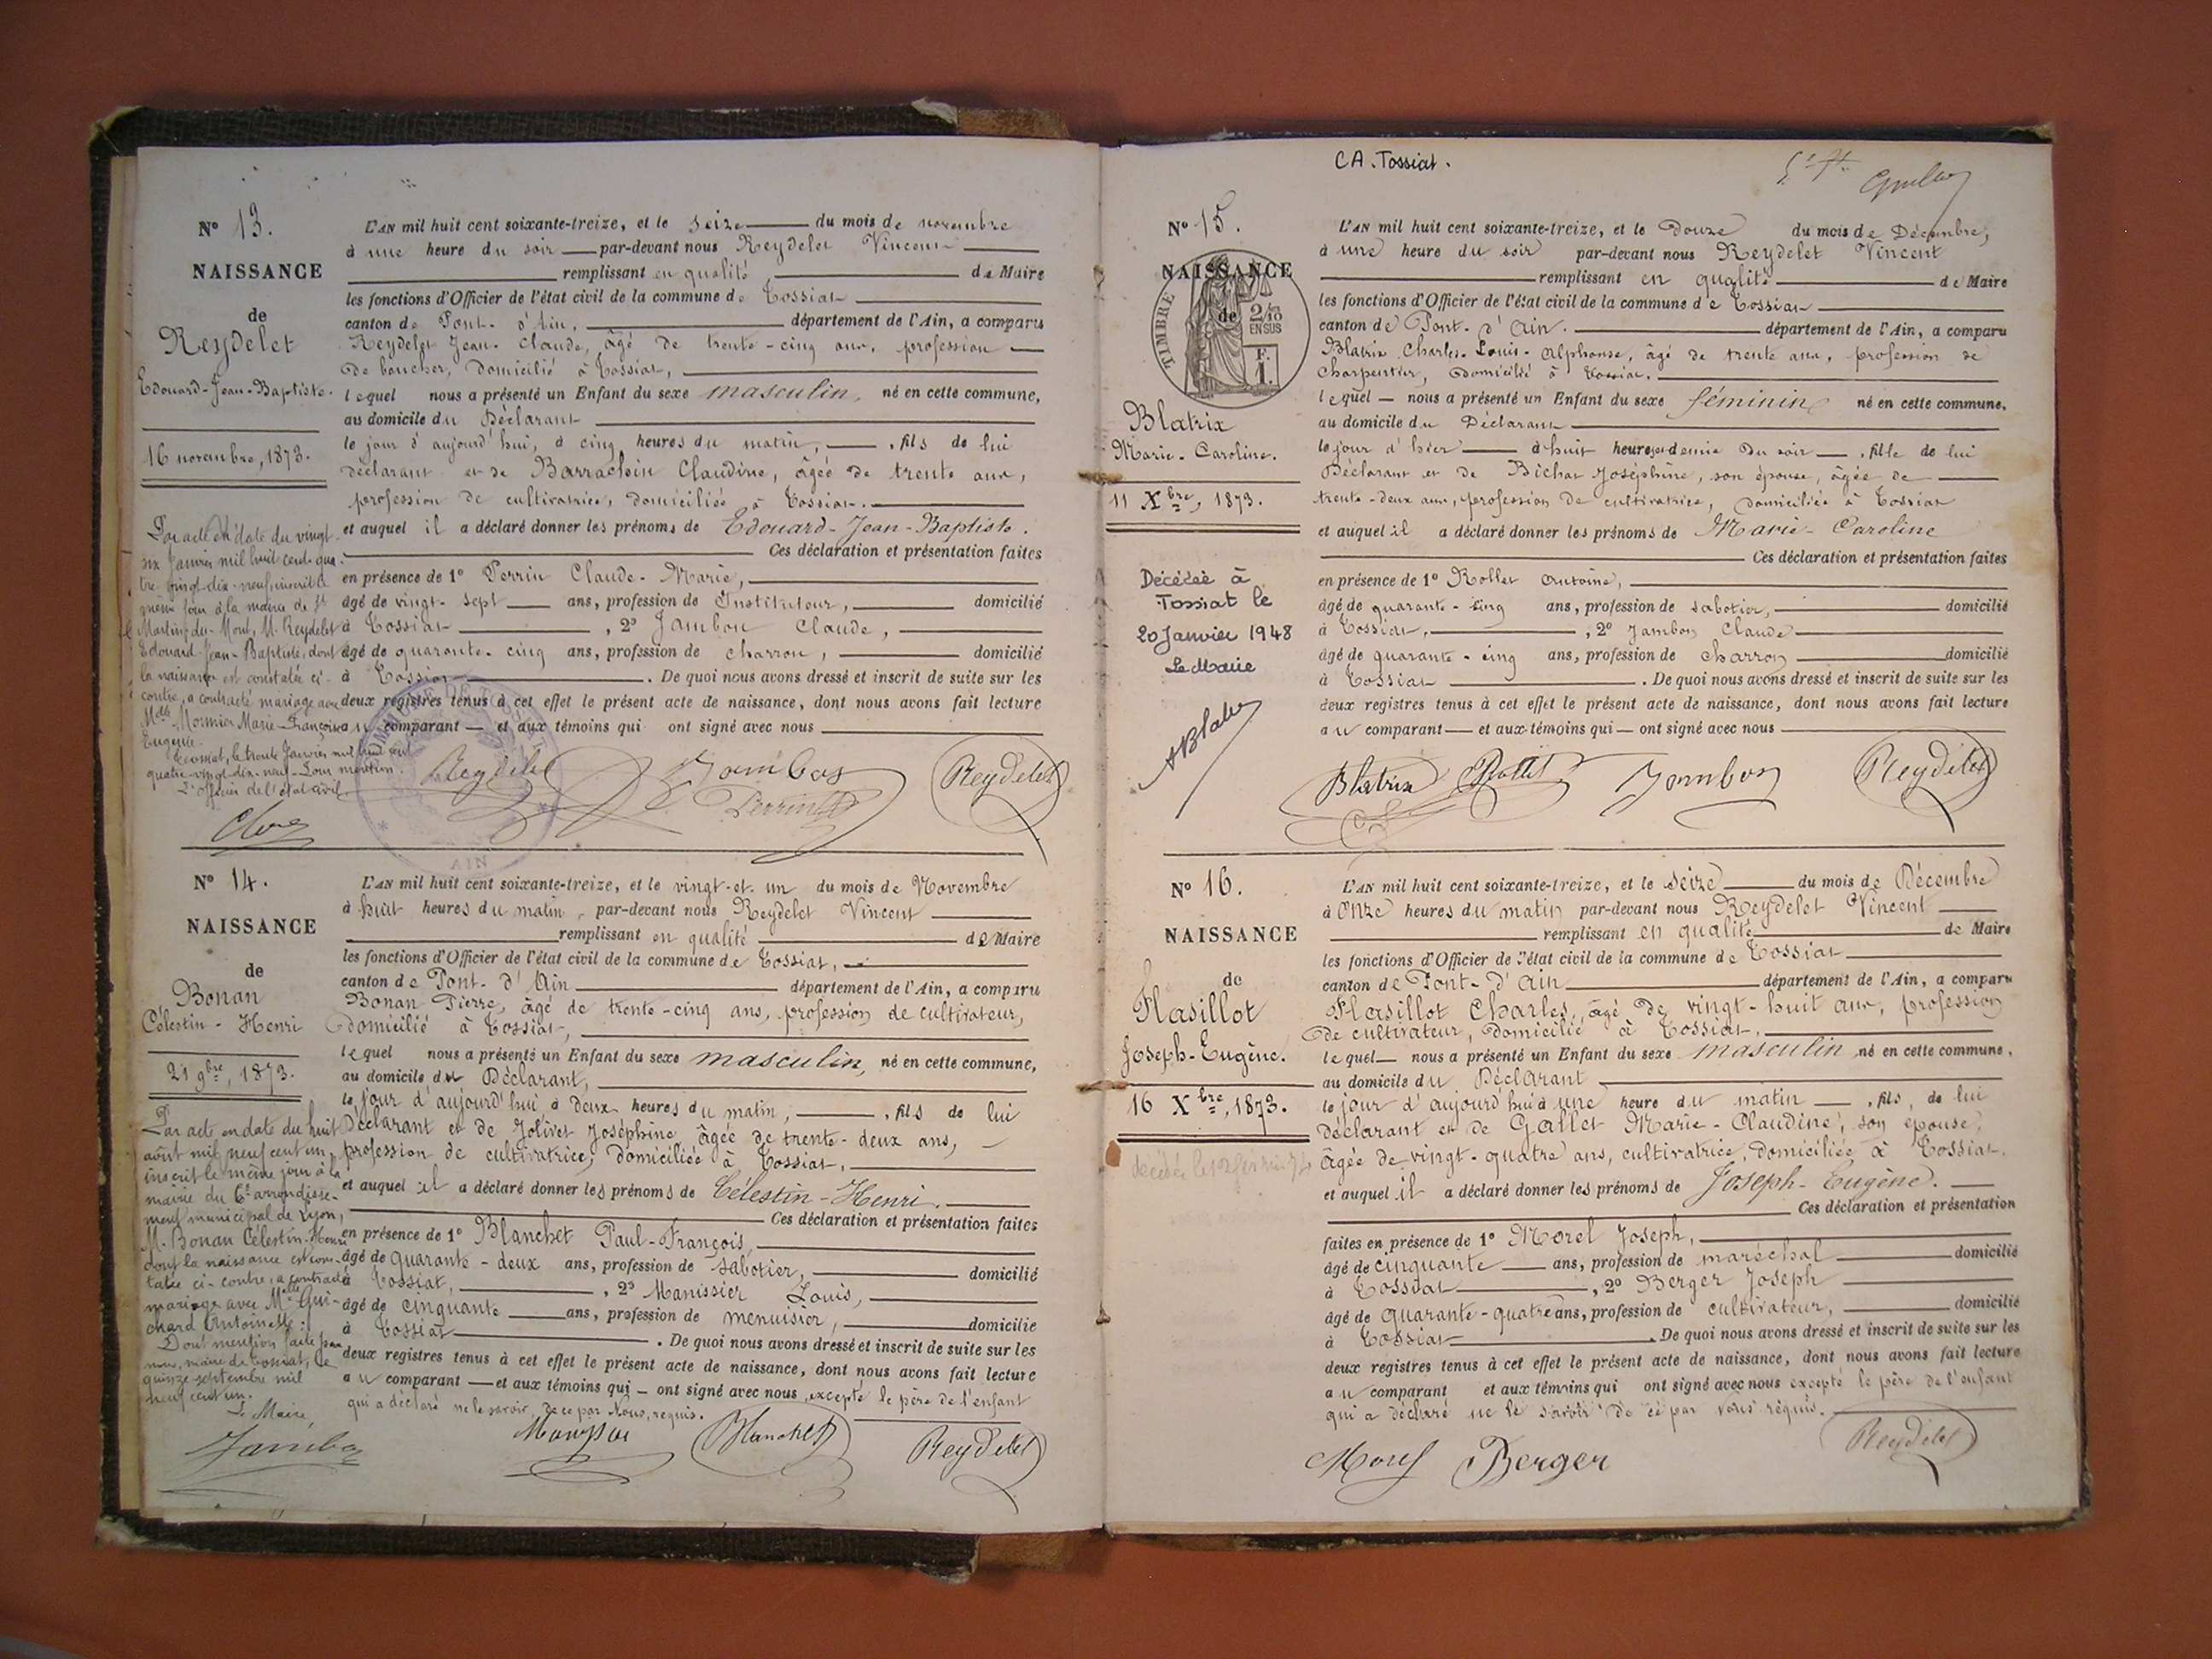 N° 13.
NAISSANCE
de
Reydelet
Edouard-Jean-Baptiste.
16 novembre, 1873.
Par acte en date du vingt-
six Janvier mil huit cent qua-
tre-vingt-dix-neuf, inscrit le
même jour à la mairie de St
Martin-du-Mont, M. Reydelet
Edouard-Jean-Baptiste, dont
la naissance est constatée ci-
contre, a contracté mariage avec
Melle Mormier Marie-Françoise
Eugénie.
Tossiat, le trente Janvier mil huit cent
quatre-vingt-dix-neuf. Dont mention.
L'officier de l'état civil
L'AN mil huit cent soixante-treize, et le seize du mois de novembre
à une heure du soir par-devant nous Reydelet Vincent
remplissant en qualité de Maire
les fonctions d'Officier de l'état civil de la commune de Tossiat
canton de Pont-d'Ain, département de l'Ain, a comparu
Reydelet Jean-Claude, âgé de trente-cinq ans, profession
de boucher, domicilié à Tossiat,
lequel nous a présenté un Enfant du sexe masculin, né en cette commune,
au domicile du Déclarant
le jour d'aujourd'hui, à cinq heures du matin, , fils de lui
déclarant et de Barrachin Claudine, âgée de trente ans,
profession de cultivatrice, domiciliée à Tossiat.
et auquel il a déclaré donner les prénoms de Edouard-Jean-Baptiste.
Ces déclaration et présentation faites
en présence de 1° Perrin Claude-Marie,
âgé de vingt-sept ans, profession de Instituteur, domicilié
à Tossiat , 2° Jambon Claude,
âgé de quarante-cinq ans, profession de charron, domicilié
à Tossiat . De quoi nous avons dressé et inscrit de suite sur les
deux registres tenus à cet effet le présent acte de naissance, dont nous avons fait lecture
au comparant et aux témoins qui ont signé avec nous
Reydelet Jambon Perrin Reydelet
AIN
N° 14.
NAISSANCE
de
Bonan
Célestin-Henri
21 9bre, 1873.
Par acte en date du huit
août mil neuf cent un,
inscrit le même jour à la
mairie du 6e arrondisse-
ment municipal de Lyon,
M. Bonan Célestin-Henri
dont la naissance est cons-
tatée ci-contre, a contracté
mariage avec Melle Gui-
chard Antoinette.
Dont mention faite par
nous, maire de Tossiat, le
quinze septembre mil
neuf cent un.
Le Maire,
Jambon
L'AN mil huit cent soixante-treize, et le vingt-et-un du mois de Novembre
à huit heures du matin, par-devant nous Reydelet Vincent
remplissant en qualité de Maire
les fonctions d'Officier de l'état civil de la commune de Tossiat,
canton de Pont-d'Ain département de l'Ain, a comparu
Bonan Pierre, âgé de trente-cinq ans, profession de cultivateur,
domicilié à Tossiat,
lequel nous a présenté un Enfant du sexe masculin, né en cette commune,
au domicile du Déclarant,
le jour d'aujourd'hui à deux heures du matin, , fils de lui
Déclarant et de Jolivet Joséphine âgée de trente-deux ans,
profession de cultivatrice, domiciliée à Tossiat,
et auquel il a déclaré donner les prénoms de Célestin-Henri.
Ces déclaration et présentation faites
en présence de 1° Blanchet Paul-François,
âgé de quarante-deux ans, profession de sabotier, domicilié
à Tossiat, , 2° Manissier Louis,
âgé de cinquante ans, profession de menuisier, domicilié
à Tossiat . De quoi nous avons dressé et inscrit de suite sur les
deux registres tenus à cet effet le présent acte de naissance, dont nous avons fait lecture
au comparant et aux témoins qui ont signé avec nous, excepté le père de l'enfant
qui a déclaré ne le savoir, de ce par Nous, requis.
Blanchet Reydelet
CA. Tossiat.
N° 15.
NAISSANCE
de
TIMBRE
2/10
EN SUS
F.
1.
Blatrix
Marie-Caroline.
11 Xbre, 1873.
Décédée à
Tossiat le
20 Janvier 1948
Le Maire
L'AN mil huit cent soixante-treize, et le Douze du mois de Décembre,
à une heure du soir par-devant nous Reydelet Vincent
remplissant en qualité de Maire
les fonctions d'Officier de l'état civil de la commune de Tossiat
canton de Pont-d'Ain. département de l'Ain, a comparu
Blatrix Charles-Louis-Alphonse, âgé de trente ans, profession de
Charpentier, domicilié à Tossiat.
lequel nous a présenté un Enfant du sexe féminin né en cette commune,
au domicile du Déclarant
le jour d'hier à huit heures et demie du soir , fille de lui
Déclarant et de Bichat Joséphine, son épouse, âgée de
trente-deux ans, profession de cultivatrice, domiciliée à Tossiat
et auquel il a déclaré donner les prénoms de Marie-Caroline
Ces déclaration et présentation faites
en présence de 1° Rollet Antoine,
âgé de quarante-cinq ans, profession de sabotier, domicilié
à Tossiat, , 2° Jambon Claude
âgé de quarante-cinq ans, profession de charron domicilié
à Tossiat . De quoi nous avons dressé et inscrit de suite sur les
deux registres tenus à cet effet le présent acte de naissance, dont nous avons fait lecture
au comparant et aux témoins qui ont signé avec nous
Blatrix Rollet Jambon Reydelet
N° 16.
NAISSANCE
de
Flasillot
Joseph-Eugène.
16 Xbre, 1873.
L'AN mil huit cent soixante-treize, et le seize du mois de Décembre
à onze heures du matin par-devant nous Reydelet Vincent
remplissant en qualité de Maire
les fonctions d'Officier de l'état civil de la commune de Tossiat
canton de Pont-d'Ain département de l'Ain, a comparu
Flasillot Charles, âgé de vingt-huit ans, profession
de cultivateur, domicilié à Tossiat,
lequel nous a présenté un Enfant du sexe masculin né en cette commune,
au domicile du Déclarant
le jour d'aujourd'hui à une heure du matin , fils, de lui
déclarant et de Gallet Marie-Claudine, son épouse,
âgée de vingt-quatre ans, cultivatrice, domiciliée à Tossiat.
et auquel il a déclaré donner les prénoms de Joseph-Eugène.
Ces déclaration et présentation
faites en présence de 1° Morel Joseph,
âgé de cinquante ans, profession de maréchal domicilié
à Tossiat , 2° Berger Joseph
âgé de quarante-quatre ans, profession de cultivateur, domicilié
à Tossiat . De quoi nous avons dressé et inscrit de suite sur les
deux registres tenus à cet effet le présent acte de naissance, dont nous avons fait lecture
au comparant et aux témoins qui ont signé avec nous excepté le père de l'enfant
qui a déclaré ne le savoir de ce par Nous requis.
Morel Berger Reydelet